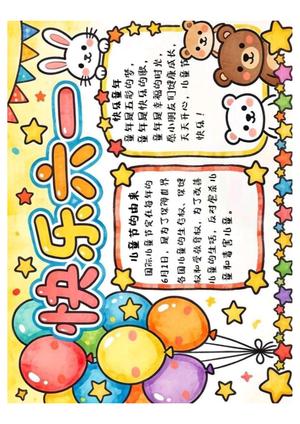 快乐六一
快乐童年
童年是五彩的梦，
童年是快乐的歌，
童年是幸福的时光，
愿小朋友们健康成长，
天天开心，儿童节
快乐！
儿童节的由来
国际儿童节定在每年的
6月1日，是为了保障世界
各国儿童的生存权、保健
权和受教育权，为了改善
儿童的生活，反对虐杀儿
童和毒害儿童。